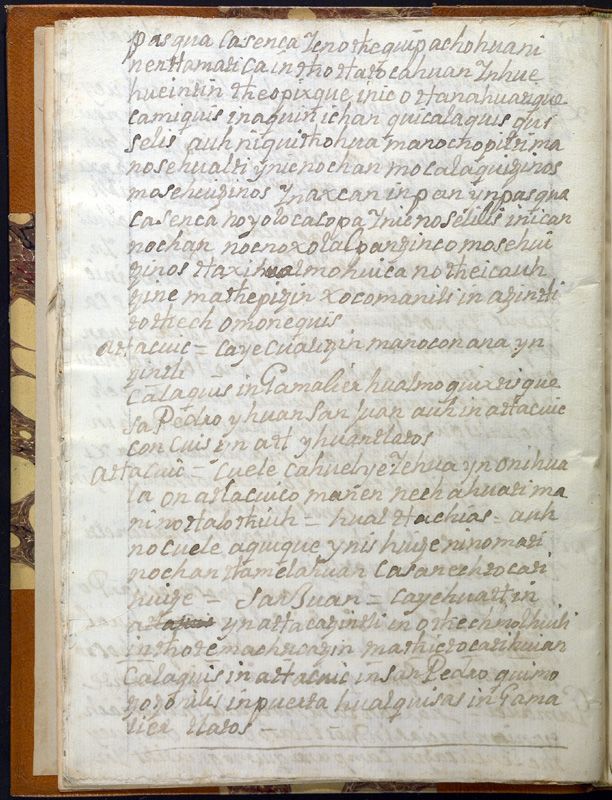 pasqua Casenca Yc nothequipachohuani
nentlamatica in thotlatocahuan Ynhue
hueintin theopixque inic otlanahuatique
camiquis inaquin ichan quicalaquis qui
selis auh niquithohua manochopilzima
nosehualti ynic nochan mocalaquizinos
mosehuizinos Ynaxcan inpan ynpasqua
Casenca noyolocacopa Ynic noselilis inican
nochan nocnoxolalpanzinco mosehui
zinos tlaxihualmohuica notheicauh
zine mathepizin xocomanili in azintli
totthech omonequis
Atlacuic = Caye Cualizin manoconana yn
zintli
Calaquis in Gamaliel hualmoquixtisque
Sa Pedro yhuan San Juan auh in atlacuic
concuis yn atl yhuan tlatos
Atlacuic = Cuele cahuel ye Yehua yn onihua
la on atlacuico mañen nechahuati ma
ni notlalothiuh = hual tlachias = auh
no Cuele aquique ynis huize ninomati
nochan tlamelahuan Casanechtocati
huize = San Juan = Cayehuatl in
ynatlacazintli in othechmolhuili
in thotemachticazin mathictocatihuian
Calaquis in atlacuic in San Pedro quimo
zozonilis inpuerta hualquisas in Gama
liel tlatos